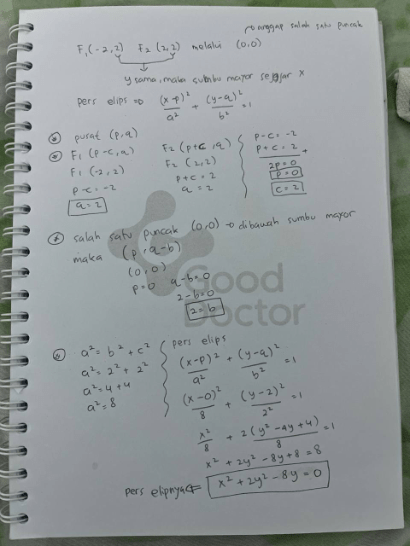 ↱ anggap salah satu puncak
F₁(-2,2) F₂(2,2) melalui (0,0)
y sama, maka sumbu mayor sejajar x
pers elips ⇒ (x-p)²/a² + (y-q)²/b² = 1
pusat (p,q)
F₁(p-c,q) F₂(p+c,q)
F₁(-2,2) F₂(2,2)
p-c=-2 p+c=2
q=2 q=2
p-c=-2
p+c=2 +
2p=0
p=0
c=2
salah satu puncak (0,0) → dibawah sumbu mayor
maka (p,q-b)
(0,0)
p=0 q-b=0
2-b=0
2=b
a²=b²+c²
a²=2²+2²
a²=4+4
a²=8
pers elips
(x-p)²/a² + (y-q)²/b² = 1
(x-0)²/8 + (y-2)²/2² = 1
x²/8 + 2(y²-4y+4)/8 = 1
x²+2y²-8y+8=8
pers elipnya ⇐ x²+2y²-8y=0
Good
Doctor